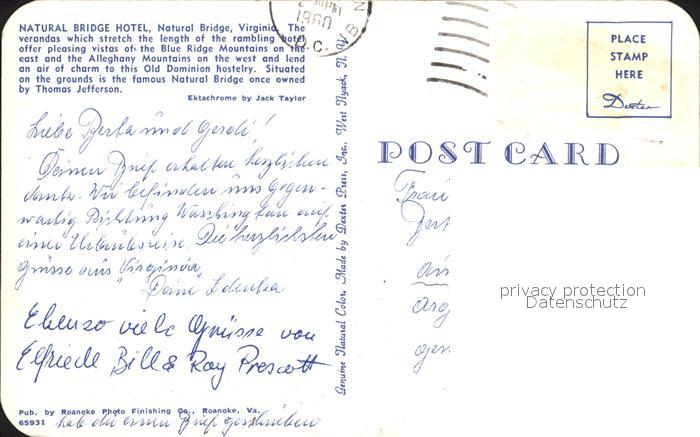 NATURAL BRIDGE HOTEL, Natural Bridge, Virginia. The
verandas which stretch the length of the rambling hotel
offer pleasing vistas of the Blue Ridge Mountains on the
east and the Alleghany Mountains on the west and lend
an air of charm to this Old Dominion hostelry. Situated
on the grounds is the famous Natural Bridge once owned
by Thomas Jefferson.
Ektachrome by Jack Taylor
1960
Liebe Berta und Gerdi!
Deinen Brief erhalten herzlichen
dank. Wir befinden uns gegen-
wärtig Richtung Washington auf
einer Urlaubsreise. Die herzlichsten
Grüsse aus Virginia
Deine
Ebenso viele Grüsse von
Elfriede Bill & Ray Prescott
Pub. by Roanoke Photo Finishing Co., Roanoke, Va.
65931
hab dir einen Brief geschrieben
Genuine Natural Color, Made by Dexter Press, Inc., West Nyack, N. Y.
PLACE
STAMP
HERE
Dexter
POST CARD
privacy protection
Datenschutz